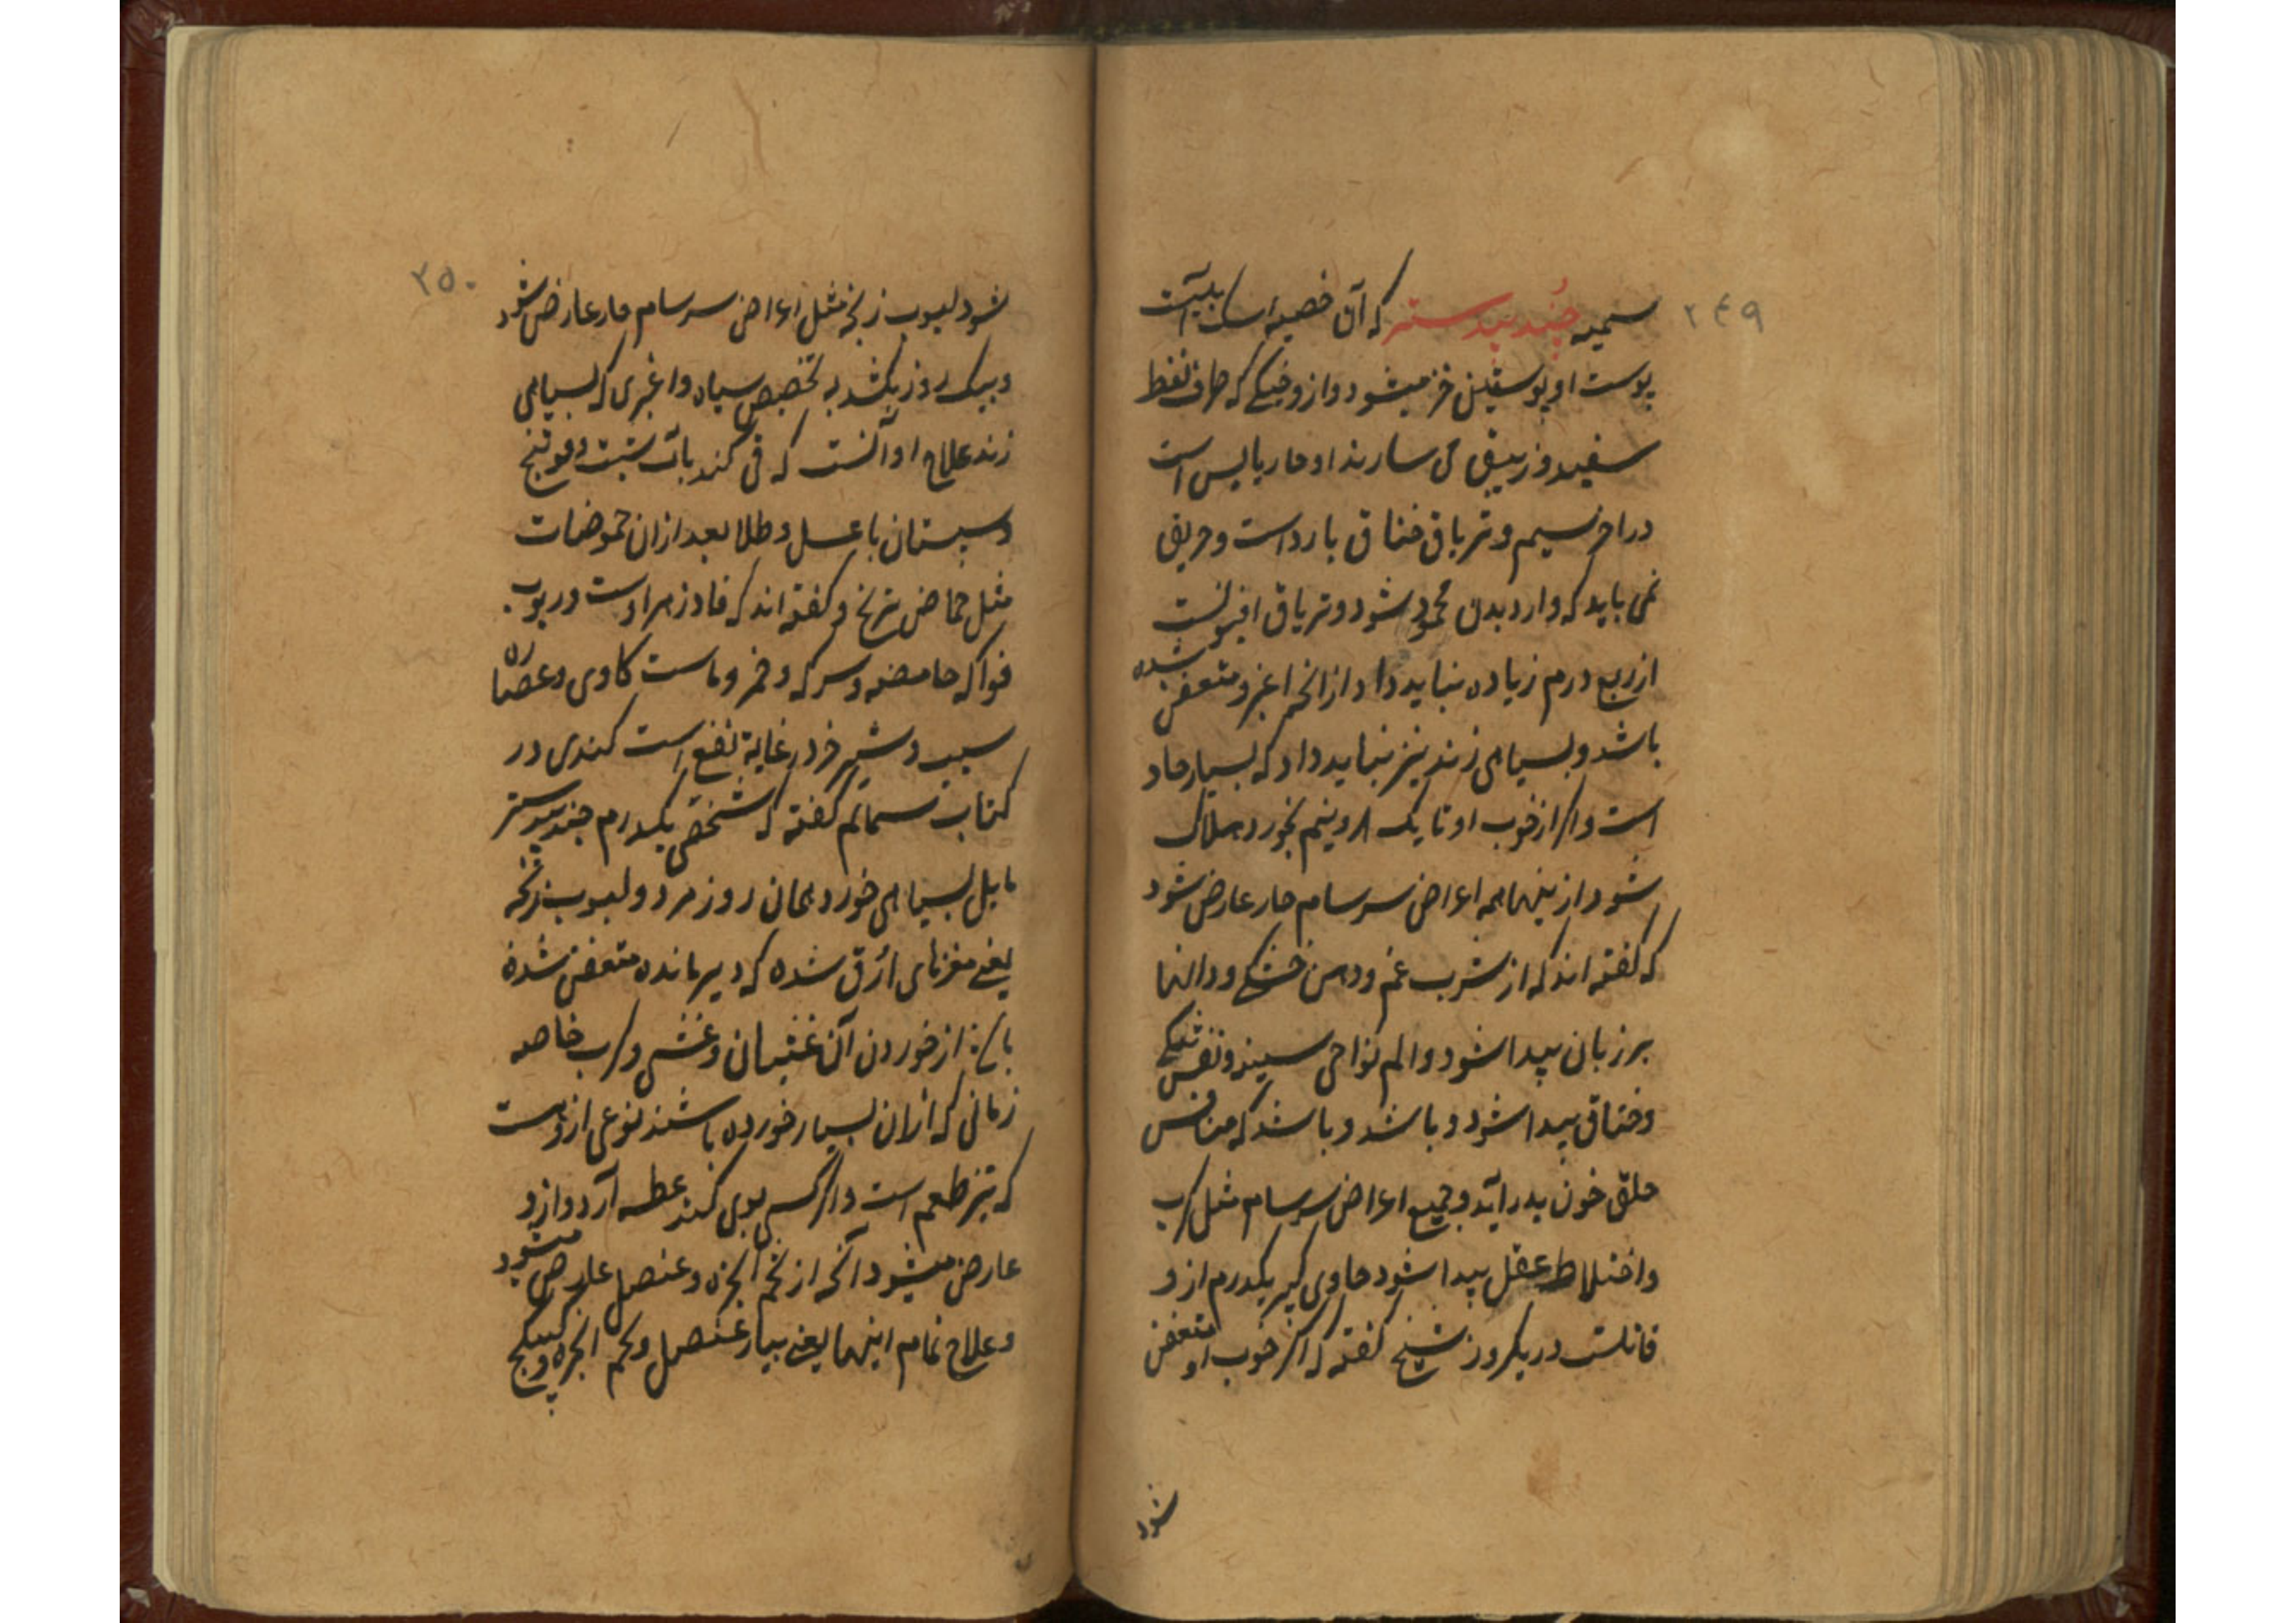 ۲۴۹
سمیه جند بیدستر که آن خصیه سک آبیست
پوست او پوستین خز میشود و از وی که صاف نفط
سفید و زیبق می سازند او حار یابس است
در آخر سیم و تریاق خناق بارد است و حریفی
نمی باید که وارد بدن محمود شود و تریاق افیونست
از ربع درم زیاده نباید داد از آنچه اغبر و متعفن شده
باشد و بسیاهی زند نیز نباید داد که بسیار حاد
است و اگر از خوب او تا یک درم و نیم بخورد هلاک
شود از اینها همه اعراض سرسام حار عارض شود
که گفته اند که از شرب غم و دهن خشکی و دانها
بر زبان پیدا شود و الم نواحی سینه و تنکی نفس
و خناق پیدا شود و باشد و باشد که منافس
حلق خون بدر آید و جمیع اعراض سرسام مثل کرب
و اختلاط عقل پیدا شود حاوی کبیر یکدرم از و
قاتلست در یکروز شیخ گفته که اگر خوب او متعفن
شود
۲۵۰
شود لبوب زنخه مثل اعراض سرسام حار عارض شود
و بیک روز بکشد به تخصیص سیاه و اغبری که بسیاهی
زند علاج او آنست که قی کند بآب شبت و فوتنج
و سپستان با عسل و طلا بعد از آن حموضات
مثل حماض ترنج و گفته اند که فادزهر اوست در بوب
فواکه حامضه و سرکه و خمر و ماست کاوی و عصاره
سیب و شیر خر در غایة نفع است کندی در
کتاب سمائم گفته که شخصی یکدرم جند بیدستر
مایل بسیاهی خورد همان روز مرد و لبوب زنخه
یعنی مغزهای ازرق شده که دیر مانده متعفن شده
باشد از خوردن آن غثیان و غشی و کرب خاصه
زمانی که از آن بسیار خورده باشند نوعی ازوست
که تیز طعم است و اگر کسی بوی کند عطسه آرد و ازو
عارض میشود آنچه از تخم انجره و عنصل عارض میشود
و علاج تمام اینها یعنی بیار عنصل و تخم انجره و کبیکج